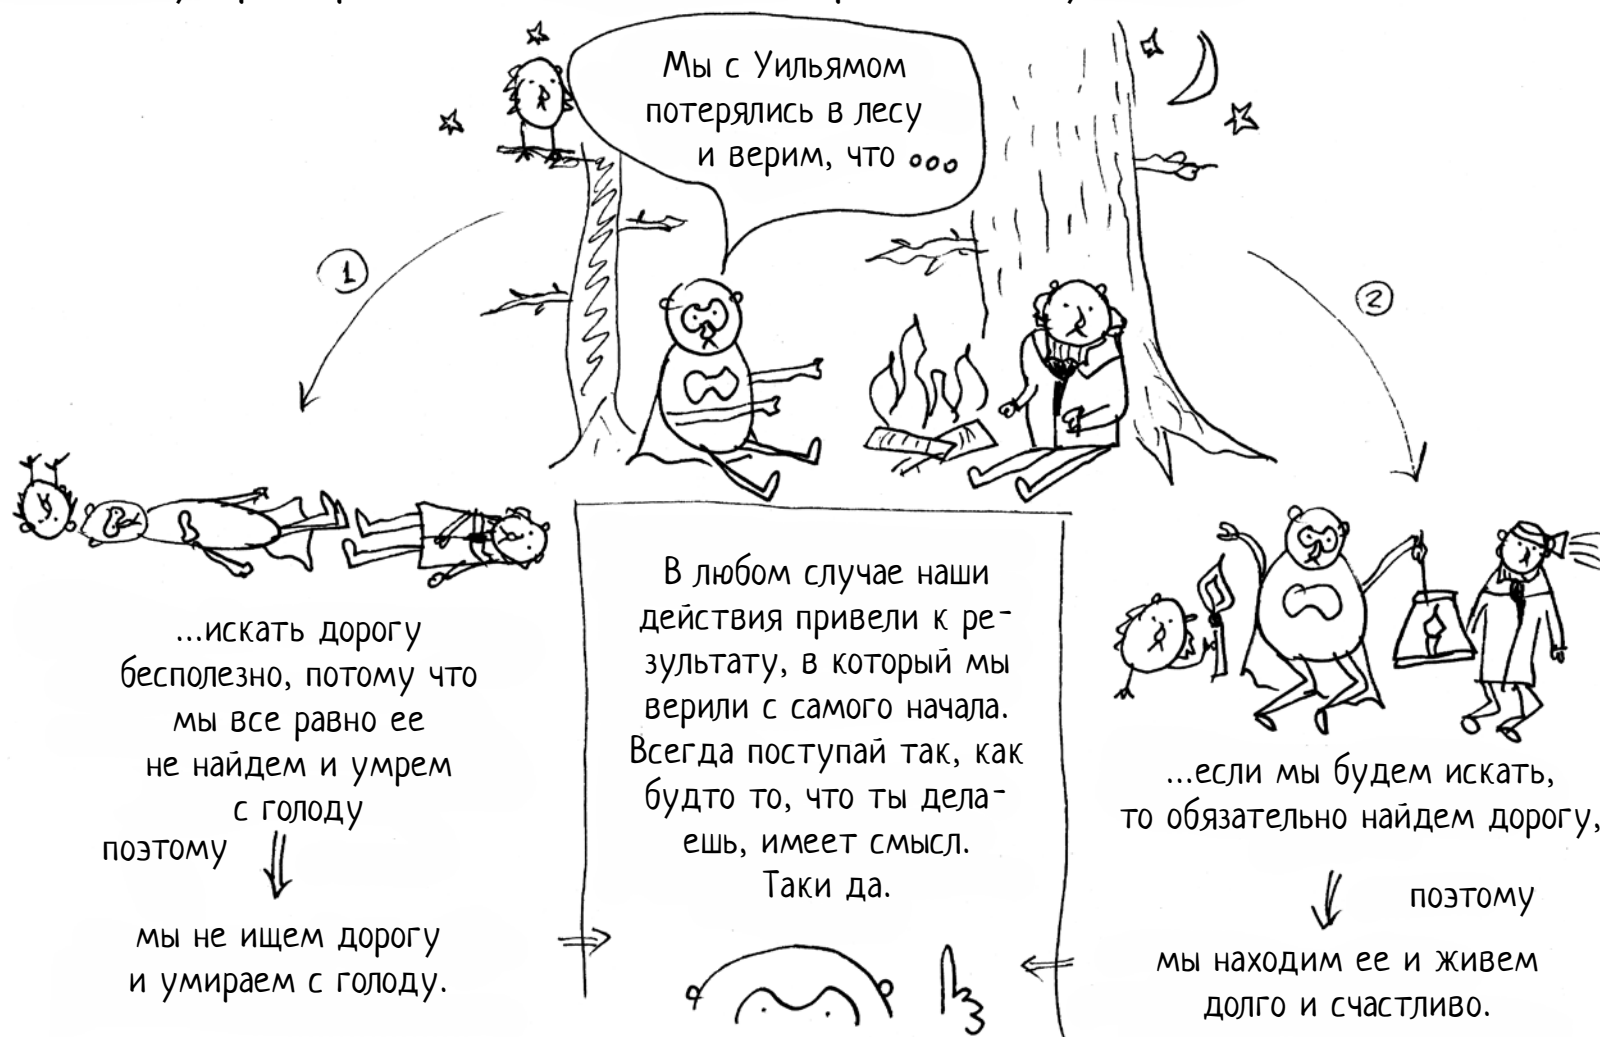 Мы с Уильямом
потерялись в лесу
и верим, что ооо
1
2
...искать дорогу
бесполезно, потому что
мы все равно ее
не найдем и умрем
с голоду
поэтому
мы не ищем дорогу
и умираем с голоду.
В любом случае наши
действия привели к ре-
зультату, в который мы
верили с самого начала.
Всегда поступай так, как
будто то, что ты дела-
ешь, имеет смысл.
Таки да.
...если мы будем искать,
то обязательно найдем дорогу,
поэтому
мы находим ее и живем
долго и счастливо.